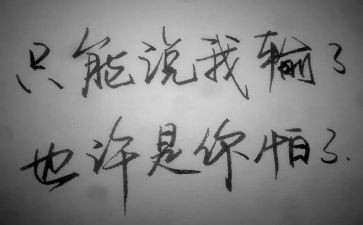 只能说我输了
也许是你怕了.